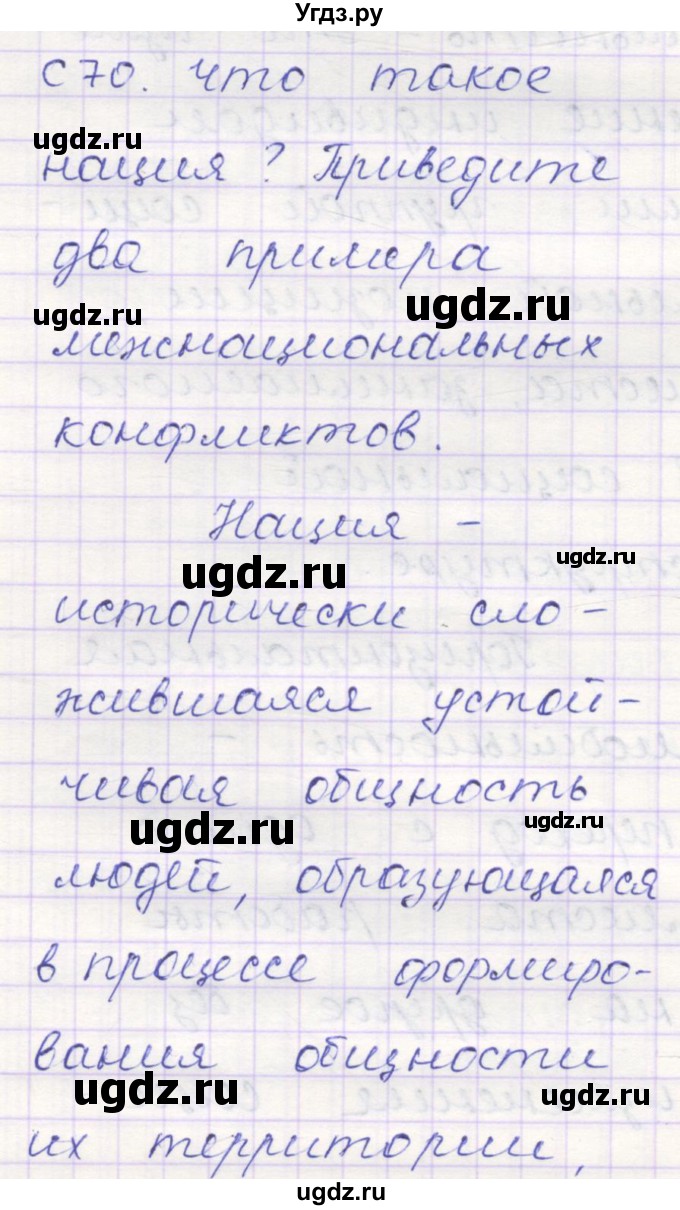 Угдз.ру
С 70. Что такое
ugdz.ru
нация? Приведите
два примера
ugdz.ru
ugdz.ru
межнациональных
конфликтов.
Нация -
ugdz.ru
ugdz.ru
исторически сло-
жившаяся устой-
чивая общность
ugdz.ru
ugdz.ru
людей, образующаяся
в процессе формиро-
вания общности
ugdz.ru
ugdz.ru
их территории,
ugdz.ru